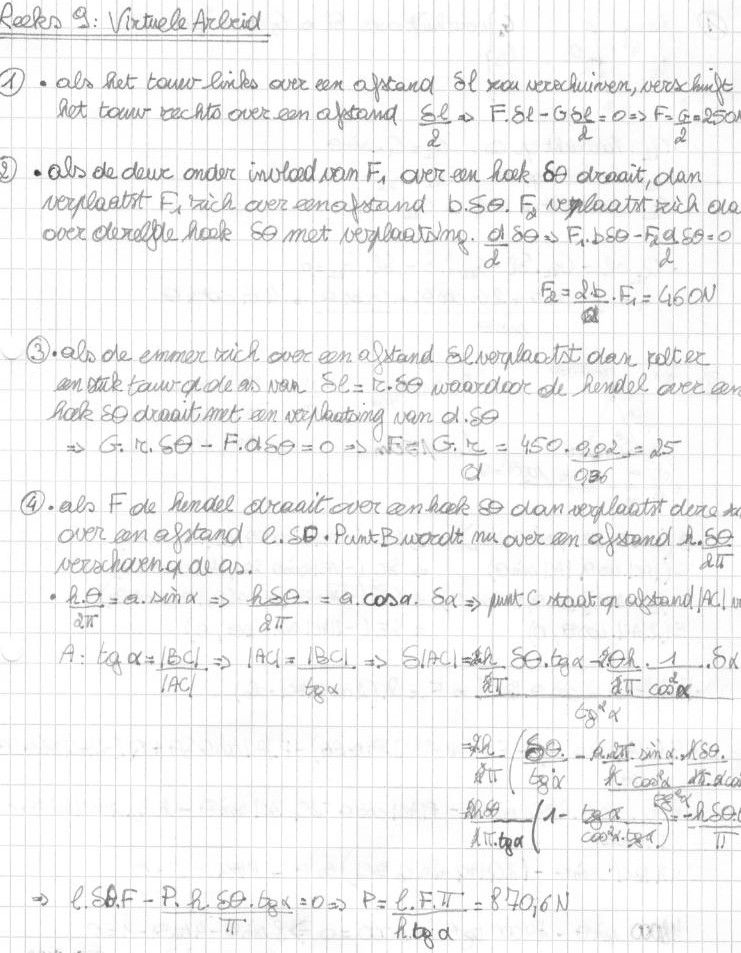 Reeks 9: Virtuele Arbeid
① • als het touw links over een afstand δl zou verschuiven, verschuift
het touw rechts over een afstand δl/2 ⇒ F.δl - G δl/2 = 0 ⇒ F = G/2 = 250N
② • als de deur onder invloed van F₁ over een hoek δθ draait, dan
verplaatst F₁ zich over een afstand b.δθ. F₂ verplaatst zich
over dezelfde hoek δθ met verplaatsing. d/2 δθ ⇒ F₁.bδθ - F₂ d/2 δθ = 0
F₂ = 2.b/d . F₁ = 460N
③ • als de emmer zich over een afstand δl verplaatst dan rolt er
een stuk touw op de as van δl = r.δθ waardoor de hendel over een
hoek δθ draait met een verplaatsing van d.δθ
⇒ G.r.δθ - F.dδθ = 0 ⇒ F = G.r/d = 450 . 0,02/0,36 = 25
④ • als F de hendel draait over een hoek δθ dan verplaatst deze
over een afstand l.δθ. Punt B wordt nu over een afstand h.δθ/2π
verschoven op de as.
• h.θ/2π = a.sinα ⇒ hδθ/2π = a.cosα. δα ⇒ punt C staat op afstand |AC| v
A: tgα = |BC|/|AC| ⇒ |AC| = |BC|/tgα ⇒ δ|AC| = 2h/2π δθ.tgα - 2θh/2π . 1/cos²α . δα / tg²α
= 2h/2π (δθ/tgα - h.2π/h . sinα/cos²α . hδθ
2hδθ/2π.tgα (1 - tgα/cos²α.tgα) = -hδθ.t/π
⇒ l.δθ.F - P.h.δθ.tgα/π = 0 ⇒ P = l.F.π/h.tgα = 870,6N